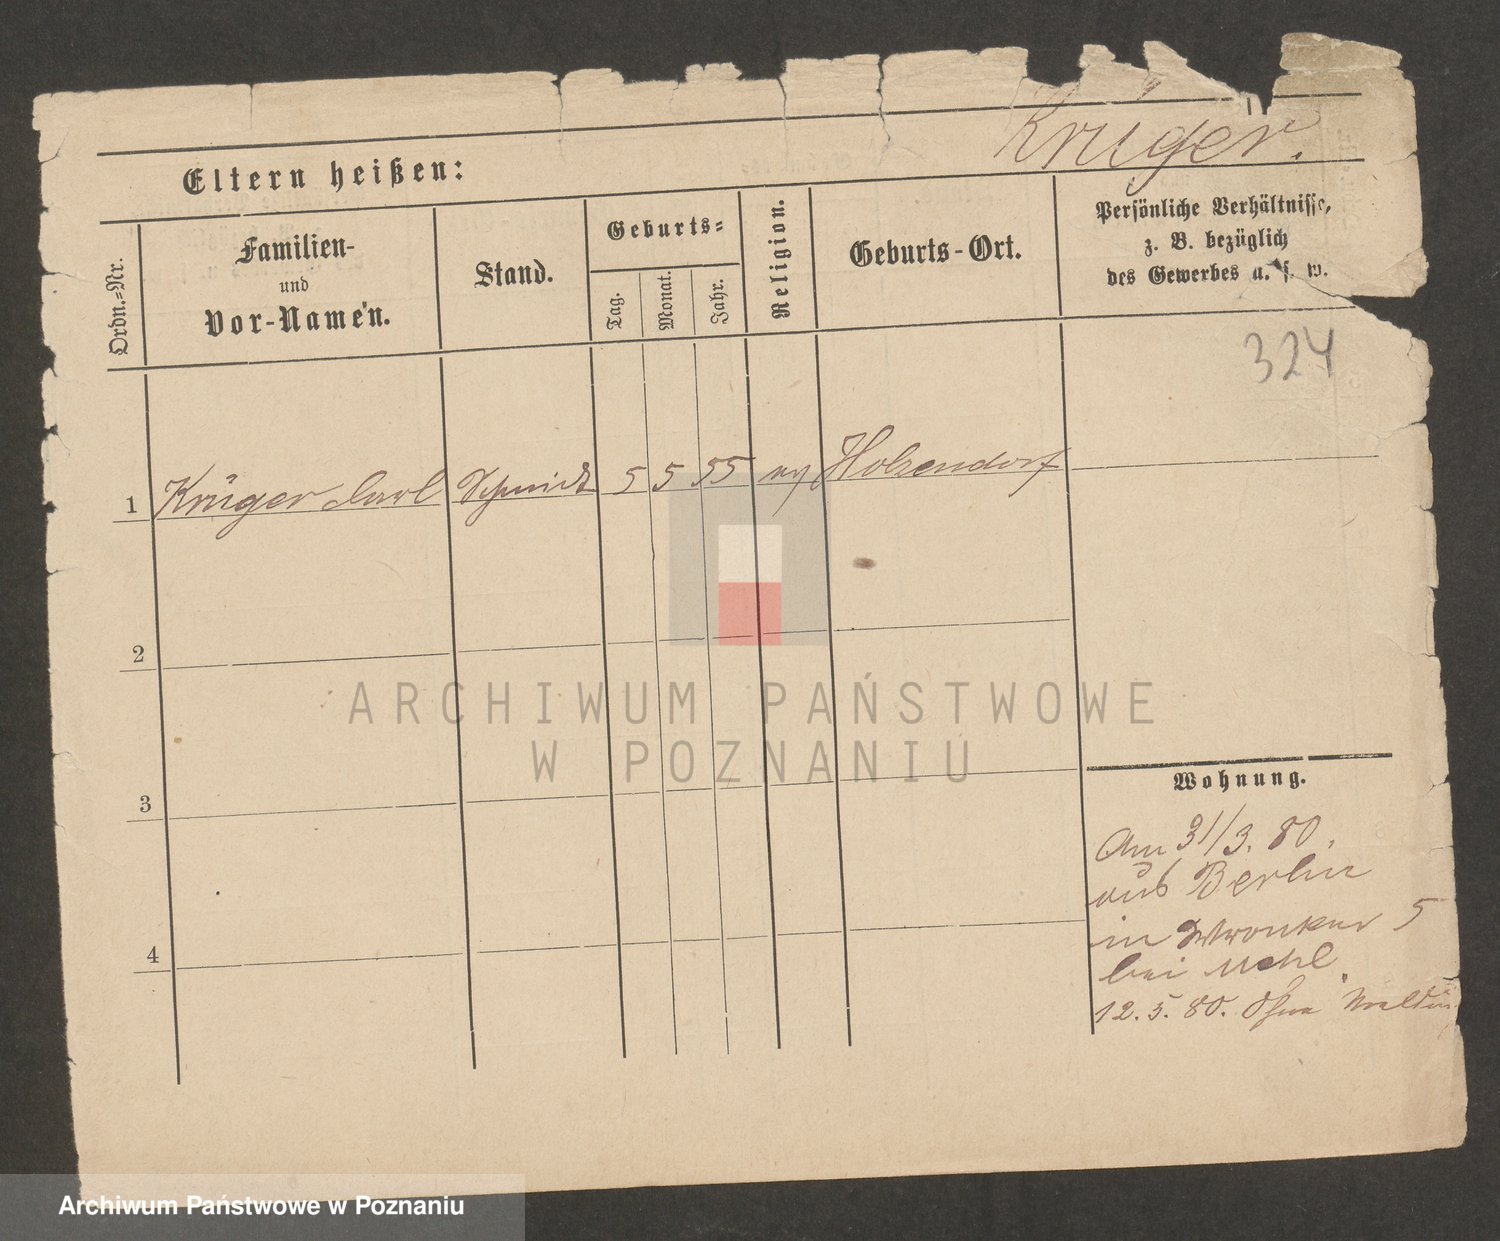 Krüger.
Eltern heißen:
Ordn.=Nr.
Familien-
und
Vor-Namen.
Stand.
Geburts=
Tag.
Monat.
Jahr.
Religion.
Geburts-Ort.
Persönliche Verhältnisse,
z. B. bezüglich
des Gewerbes u. s. w.
324
1 Krüger Carl Schmidt 5 5 55 ev Holzendorf
2
3
4
Wohnung.
Am 31/3. 80.
aus Berlin
in Wronker 5
bei
12. 5. 80. Ohne
ARCHIWUM PAŃSTWOWE
W POZNANIU
Archiwum Państwowe w Poznaniu